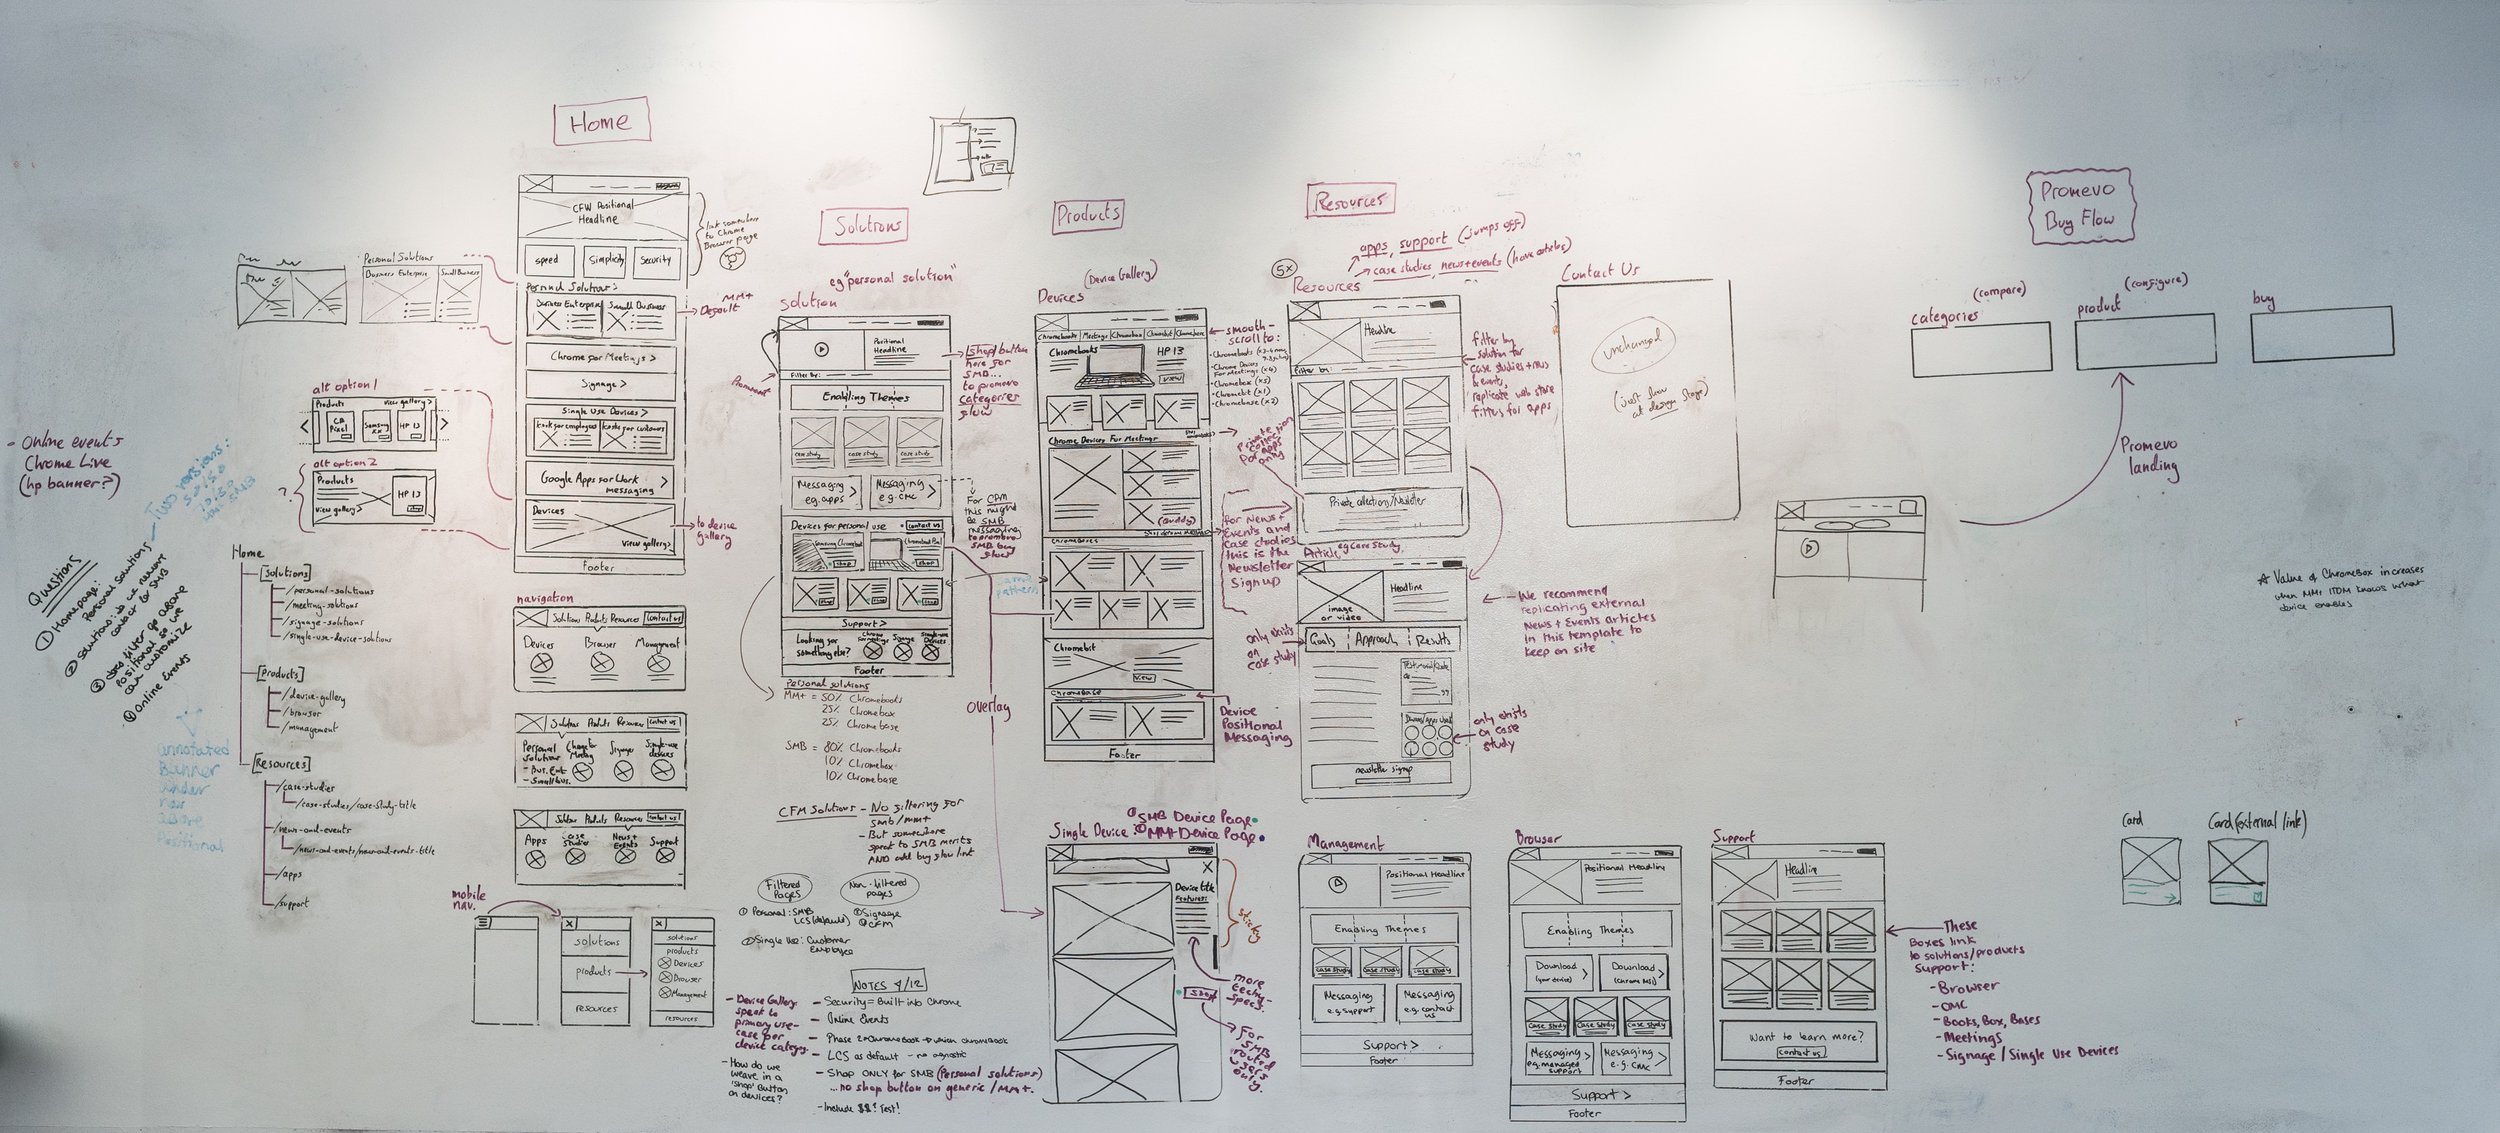 Home
CFW Positional
Headline
speed
Simplicity
Security
link somewhere
to Chrome
Browser page
Personal Solutions
Business Enterprise
Small Business
Personal Solutions
Business Enterprise
Small Business
MM+
Default
Chrome for Meetings >
Signage >
Single Use Devices >
Kiosks for employees
Kiosks for customers
Google Apps for Work
messaging
Devices
View gallery >
to device
gallery
Footer
alt option 1
Products
view gallery >
CB
Pixel
Samsung
XX
HP 13
alt option 2
?
Products
HP 13
shop
View gallery >
- Online events
Chrome Live
(hp banner?)
Two versions:
50/50
SMB
Questions
① Homepage:
Personal Solutions
② Solutions: do we review
contact for SMB
③ does filter go above
positional so we
can customize
④ Online Events
annotated
Banner
under
nav
above
Positional
Home
[Solutions]
/personal-solutions
/meeting-solutions
/signage-solutions
/single-use-device-solutions
[Products]
/device-gallery
/browser
/management
[Resources]
/case-studies
/case-studies/case-study-title
/news-and-events
/news-and-events/news-and-events-title
/apps
/support
navigation
Solutions Products Resources
contact us
Devices
Browser
Management
Solutions Products Resources
contact us
Personal
Solutions
- Bus. Ent.
- Small bus.
Chrome for
Meeting
Signage
Single-use
devices
Solutions Products Resources
contact us
Apps
Case
Studies
News +
Events
Support
mobile
nav.
solutions
products
resources
solutions
products
Devices
Browser
Management
resources
Solutions
eg "personal solution"
solution
Positional
Headline
Filter by:
Prominent
[shop] button
here for
SMB...
to promevo
categories
flow
Enabling Themes
case study
case study
case study
Messaging
eg. apps
Messaging
e.g. CMC
For CFM
this might
be SMB
messaging
to promevo
SMB buy
flow
Devices for personal use
contact us
Samsung Chromebook
shop
Chromebook Pixel
shop
shop
shop
shop
pattern
Support >
Looking for
something else?
Chrome
for meetings
Signage
Single-use
Devices
Footer
Personal solutions
MM+ = 50% Chromebooks
25% Chromebox
25% Chromebase
SMB = 80% Chromebooks
10% Chromebox
10% Chromebase
CFM Solutions - No filtering for
smb/mm+
- But somewhere
speak to SMB merits
AND add buy flow link
Filtered
Pages
① Personal: SMB
LCS (default)
② Single Use: Customer
Employee
Non-filtered
pages
① Signage
② CFM
NOTES 4/12
- Security = Built into Chrome
- Online Events
- LCS as default - no agnostic
- Shop ONLY for SMB (Personal solutions)
...no shop button on generic/MM+.
- Include $$? Test!
- Device Gallery:
speak to
primary use-
case per
device category
- How do we
weave in a
'shop' button
on devices?
Products
(Device Gallery)
Devices
Chromebooks
Meetings
Chromebox
Chromebit
Chromebase
Chromebooks
HP 13
view
smooth-
scroll to:
- Chrome Devices
For Meetings (x4)
- Chromebox (x5)
- Chromebit (x1)
- Chromebase (x2)
Chrome Devices For Meetings
Chromeboxes
Chromebit
view
ChromeBase
Footer
Device
Positional
Messaging
overlay
Single Device:
① SMB Device Page
② MM+ Device Page
Device title
Features:
sticky
more
tech-
specs.
shop
For
SMB
routed
users
only.
Resources
apps, support (jumps off)
case studies, news+events (have articles)
5x
Resources
Headline
Filter by:
filter by
solution for
case studies + news
& events,
replicate web store
filters for apps
Private
collection
for apps
only
Private collections/Newsletter
for News +
Events and
case studies
this is the
Newsletter
Sign up
Article, eg Case Study
image
or video
Headline
We recommend
replicating external
News + Events articles
in this template to
keep on site
only exists
on case study
Goals
Approach
Results
Testimonial/Quote
Devices/apps used
only exists
on case
study
newsletter signup
Contact Us
unchanged
(just show
at design stage)
Management
Positional Headline
Enabling Themes
case study
case study
case study
Messaging
e.g support
Messaging
e.g. contact
us
Support >
Footer
Browser
Positional Headline
Enabling Themes
Download
(your device)
Download
(Chrome MSI)
case study
case study
case study
Messaging
eg. managed
support
Messaging
e.g. CMC
Support >
Footer
Support
Headline
Want to learn more?
contact us
Footer
These
Boxes link
to solutions/products
support:
- Browser
- CMC
- Books, Box, Bases
- Meetings
- Signage / Single Use Devices
Promevo
Buy Flow
categories
(compare)
product
(configure)
buy
Promevo
landing
☆ Value of Chromebox increases
when MM+ ITDM knows what
device enables
Card
Card (external link)